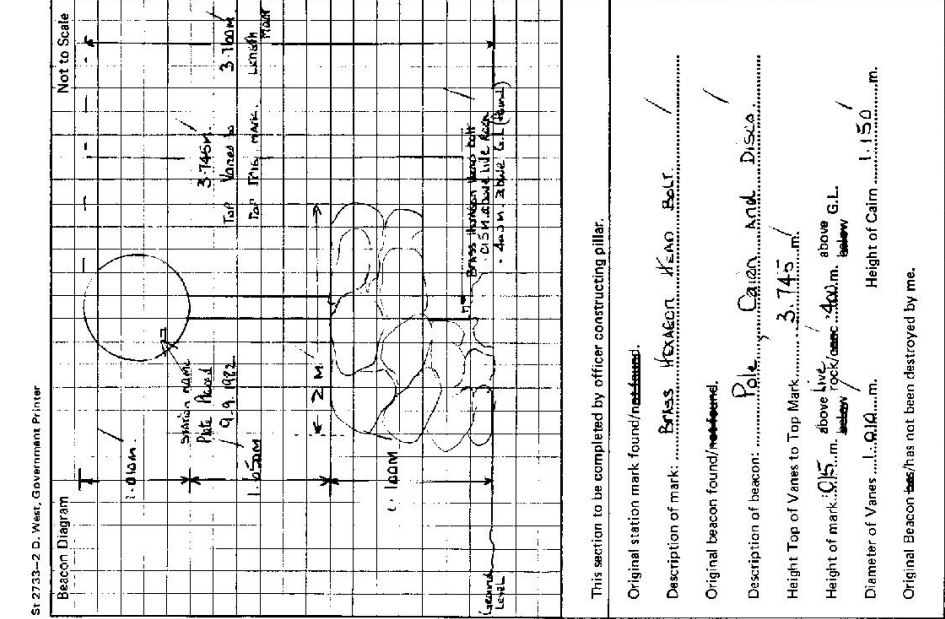 St 2733–2 D. West, Government Printer
Beacon Diagram
Not to Scale
1.010m.
Station name
Plate Placed
9.9.1982
1.650m
2 M
1.100m
Ground
Level
3.745m.
Top Vanes to
Top Trig mark.
3.760m
Length
Mast
Brass Hexagon Head bolt
.015M. above Live Rock
.400m. above G.L (found)
This section to be completed by officer constructing pillar.
Original station mark found/not found.
Description of mark: Brass Hexagon Head Bolt
Original beacon found/not found.
Description of beacon: Pole, Cairn And Discs.
Height Top of Vanes to Top Mark 3.745 m.
Height of mark .015 m. above below Live rock/conc .400 m. above below G.L.
Diameter of Vanes 1.010 m. Height of Cairn 1.150 m.
Original Beacon has/has not been destroyed by me.